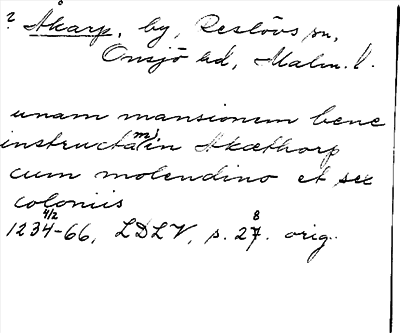 ? Åkarp, by, Reslövs sn,
Onsjö hd, Malm. l.
unam mansionem bene
instructa(m) in Akæthorp
cum molendino et sex
coloniis
1234-66, LDLV, s. 27. orig.
4/2 8